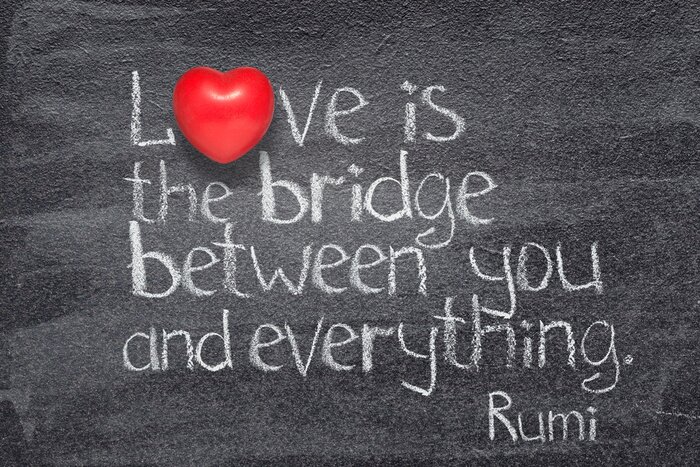 Love is
the bridge
between you
and everything.
Rumi